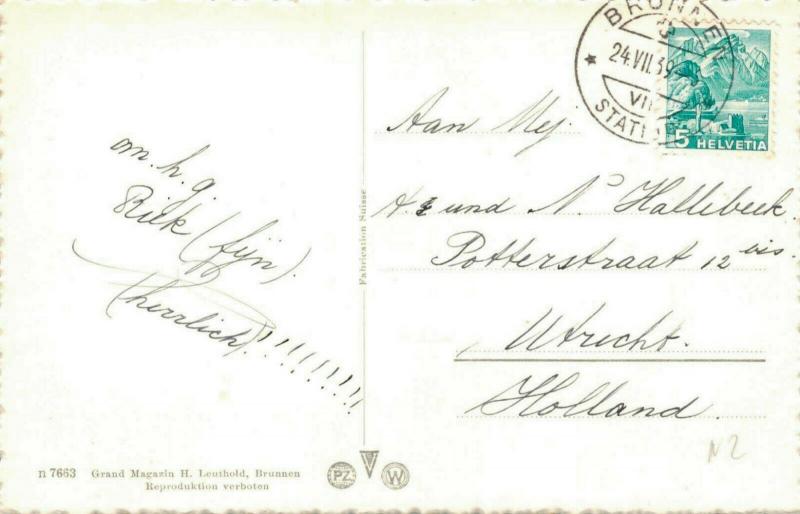 om. h. g.
Riek (fijn).
(herrlich)!!!!!!!!!
BRUNNEN
24.VII.39
VII
STATION
5 HELVETIA
Aan Mej.
A. und N. Hallibeek
Potterstraat 12 bis.
Utrecht.
Holland.
N2
Fabrication Suisse
n 7663 Grand Magazin H. Leuthold, Brunnen
Reproduktion verboten
PZ
W